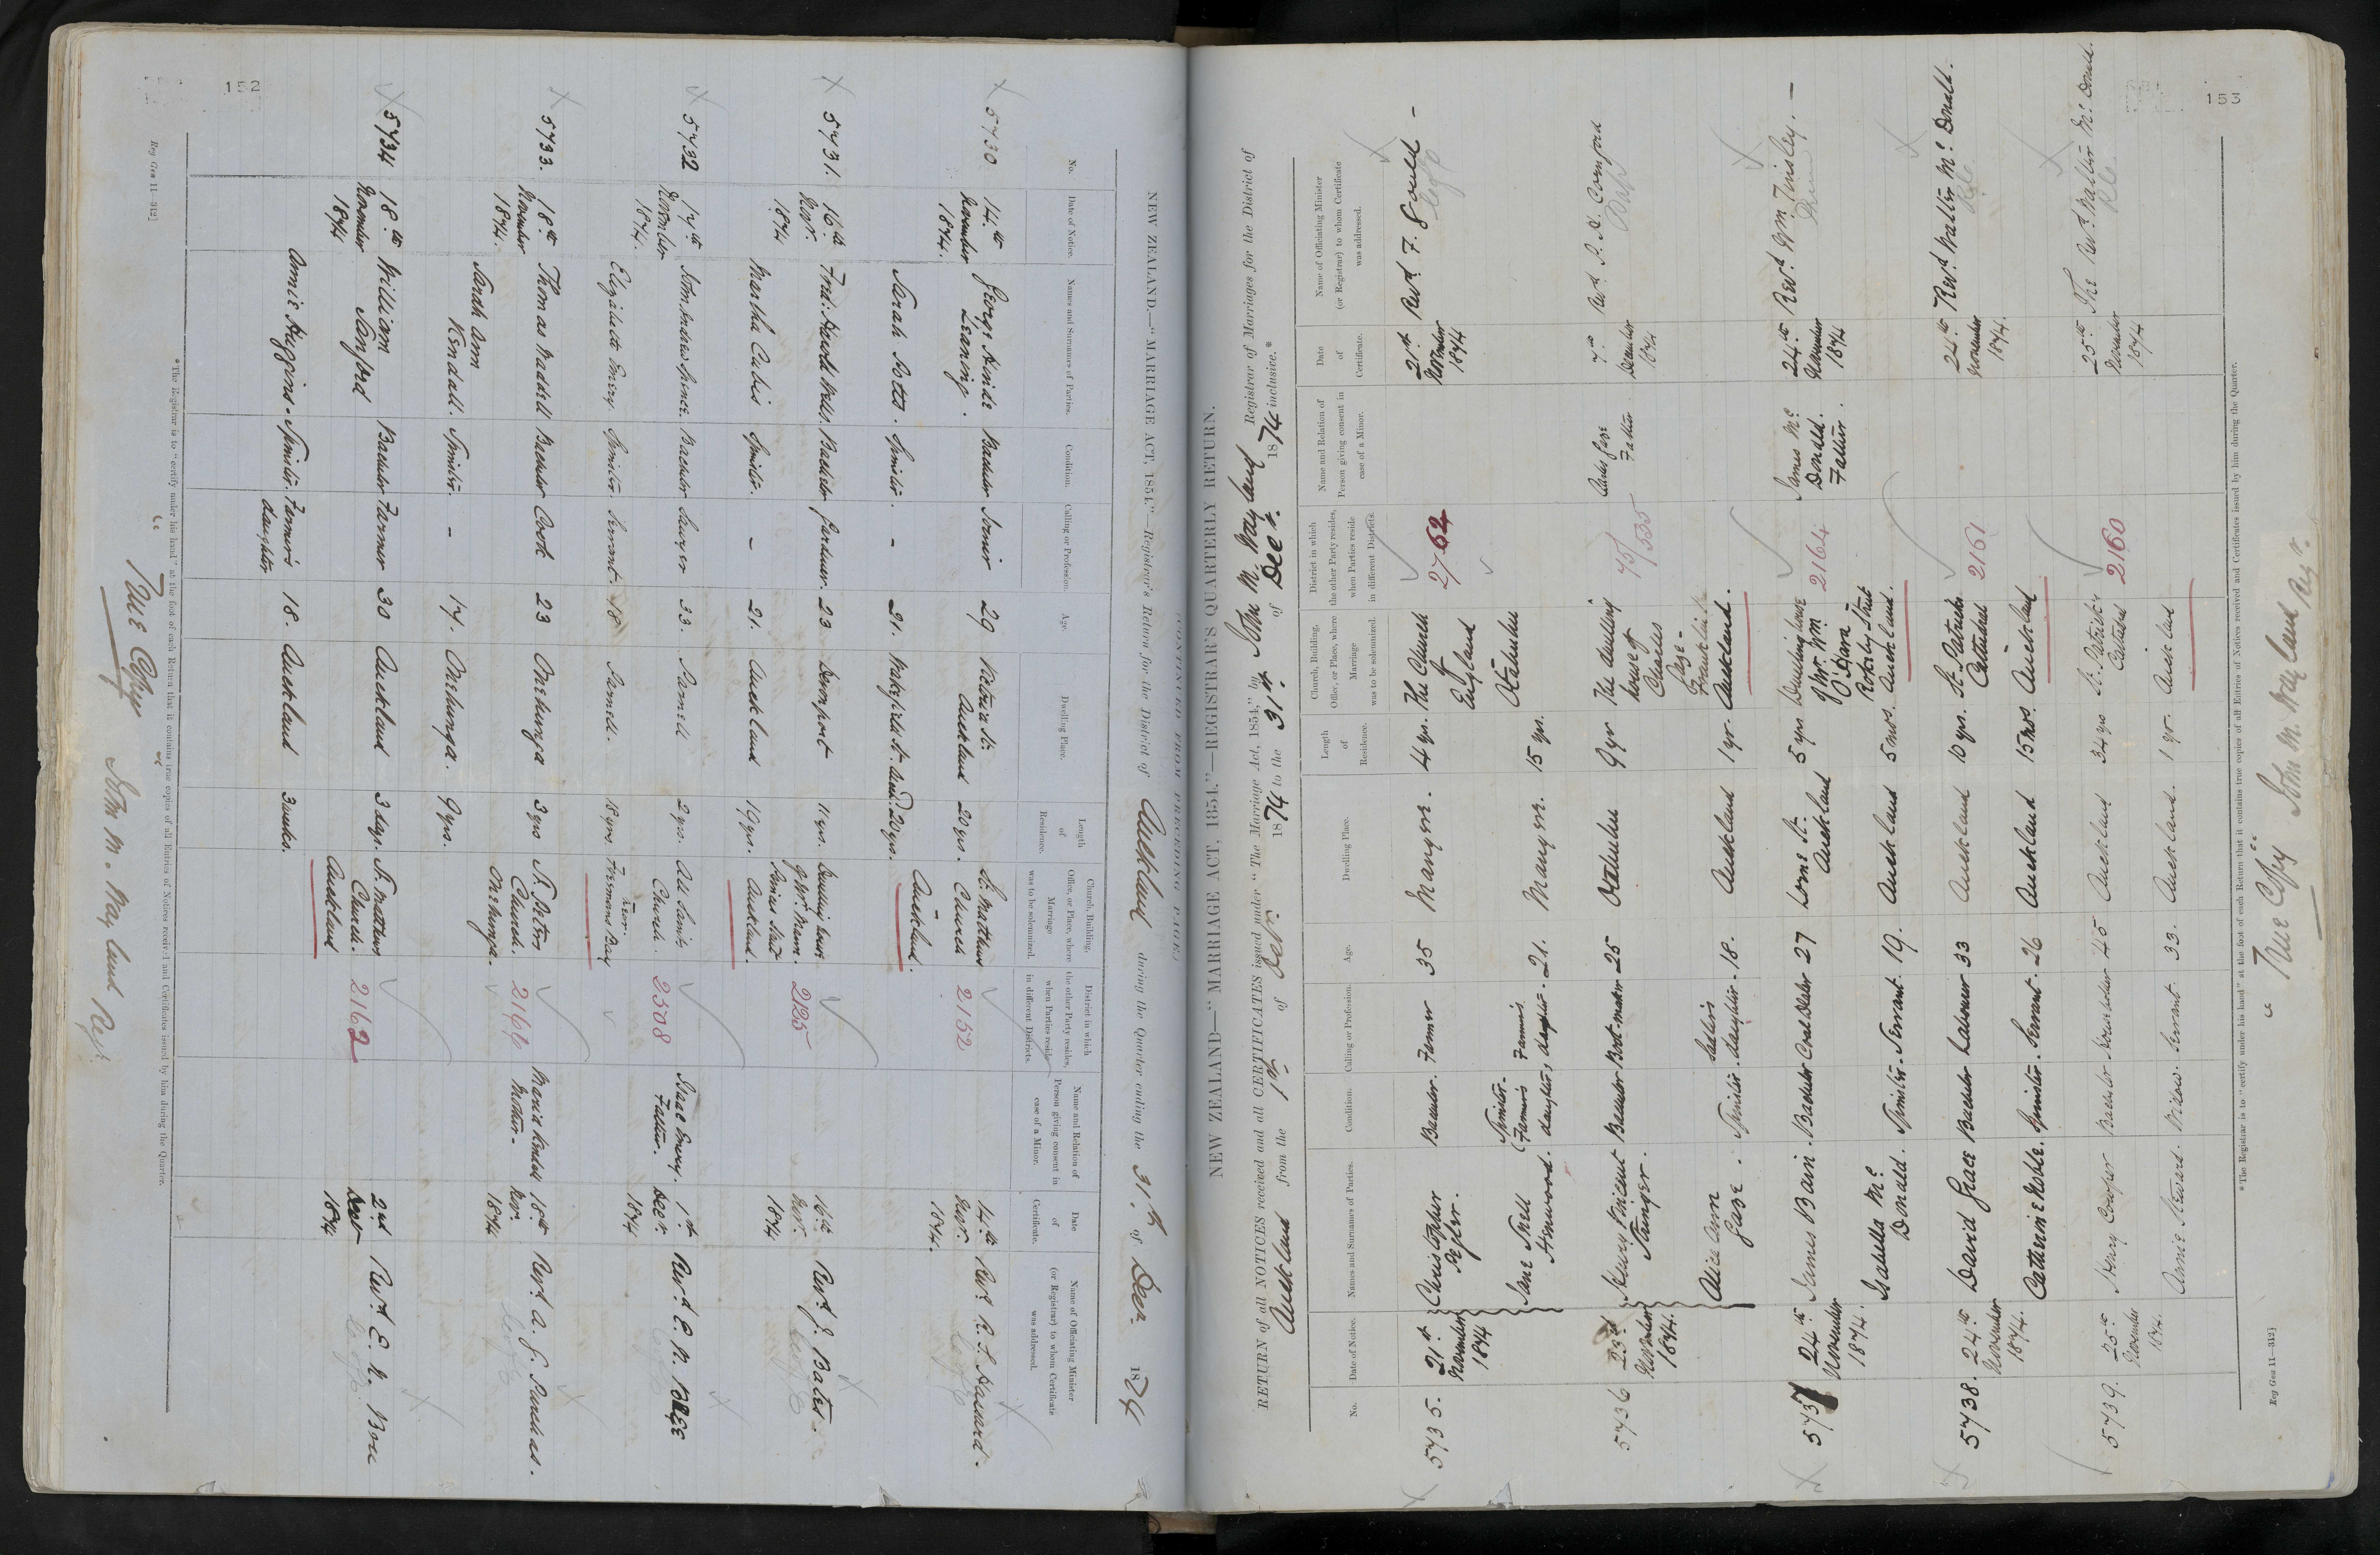 152
NEW ZEALAND.—"MARRIAGE ACT, 1854."—Registrar's Return for the District of Auckland during the Quarter ending the 31st of Decr. 1874
No.
Date of Notice.
Names and Surnames of Parties.
Condition.
Calling or Profession.
Age.
Dwelling Place.
Length of Residence.
Church, Building, Office, or Place, where Marriage was to be solemnized.
District in which the other Party resides, when Parties reside in different Districts.
Name and Relation of Person giving consent in case of a Minor.
Date of Certificate.
Name of Officiating Minister (or Registrar) to whom Certificate was addressed.
5730 14th November 1874. George Leaning. Bachelor Joiner 29 Auckland 20 yrs. St. Matthews Church 2152 14th Novr. 1874.
Sarah Potts. Spinster. - 21. Wakefield St. Auckd. 20 yrs. Auckland.
5731. 16th Novr. 1874 Bachelor 23 Devonport 11 yrs. Dwelling house 2125 16th Novr. 1874 Revd. J. Bates.
Martha Spinster. - 21. Auckland 19 yrs. Auckland.
5732 17th November 1874. Bachelor Sawyer 33. Parnell 2 yrs. All Saints Church. 2308 Isaac Emery. Father. 1st Decr. 1874
Elizabeth Emery. Spinster. Servant. 18 Parnell. 18 yrs. Freemans Bay
5733. 18th November 1874. Thomas Waddell Bachelor Cook 23 Onehunga 3 yrs St. Peters Church. Onehunga. 2166 Maria Kendall Mother. 18th Nov. 1874 Revd. A. G. Purchas.
Sarah Ann Kendall. Spinster. - 17. Onehunga. 9 yrs.
5734 18th November 1874 William Sanford Bachelor Farmer 30 Auckland 3 days. St. Matthews Church. Auckland 2162 2nd 1874
Annie Huggins. Spinster. Farmer's daughter 18. Auckland 3 weeks.
*The Registrar is to "certify under his hand" at the foot of each Return that it contains true copies of all Entries of Notices received and Certificates issued by him during the Quarter.
"True Copy" John M. Wayland Regr.
Reg Gen 11—312]
153
NEW ZEALAND—"MARRIAGE ACT, 1854."—REGISTRAR'S QUARTERLY RETURN.
RETURN of all NOTICES received and all CERTIFICATES issued under "The Marriage Act, 1854," by John M. Wayland Registrar of Marriages for the District of
Auckland from the 1st of 1874 to the 31st of Decr. 1874 inclusive.*
No.
Date of Notice.
Names and Surnames of Parties.
Condition.
Calling or Profession.
Age.
Dwelling Place.
Length of Residence.
Church, Building, Office, or Place, where Marriage was to be solemnized.
District in which the other Party resides, when Parties reside in different Districts.
Name and Relation of Person giving consent in case of a Minor.
Date of Certificate.
Name of Officiating Minister (or Registrar) to whom Certificate was addressed.
5735. 21st November 1874 Christopher Bachelor. Farmer 35 Mangere. 4 yrs. The Church of England Otahuhu 2762 21st November 1874 Revd. F. Gould -
Jane Snell Henwood. Spinster. Farmer's daughter. 21. Mangere. 15 yrs.
5736 23rd November 1874. Henry Vincent Stringer. Bachelor Boot-maker 25 Otahuhu 9 yr The dwelling house of Charles Gage - Auckland. 75/535 Charles Gage Father. 7th December 1874
Alice Ann Gage. Spinster. daughter. 18. Auckland 1 yr.
5737 24th November 1874. James Bain. Bachelor Coal Dealer 27 Lorne St. Auckland 5 yrs Dwelling house of Mr. Wm. O'Hara Auckland. 2164 James McDonald. Father. 24th November 1874 Revd. Wm. Tinsley. -
Isabella McDonald. Spinster. Servant. 19. Auckland 5 mos.
5738. 24th November 1874. David Grace Bachelor Labourer 33 Auckland 10 yrs. St. Patricks Cathedral Auckland 2161 24th November 1874. Revd. Walter McDonald.
Catherine Noble. Spinster. Servant. 26 Auckland 15 mos.
5739. 25th November 1874. Henry Cooper Bachelor 45 Auckland 34 yrs St. Patricks Cathedral Auckland 2160 25th November 1874 The Revd. Walter McDonald.
Annie Steward. Widow. Servant. 33. Auckland. 1 yr.
*The Registrar is to "certify under his hand" at the foot of each Return that it contains true copies of all Entries of Notices received and Certificates issued by him during the Quarter.
"True Copy" John M. Wayland Regr.
Reg Gen 11—312]